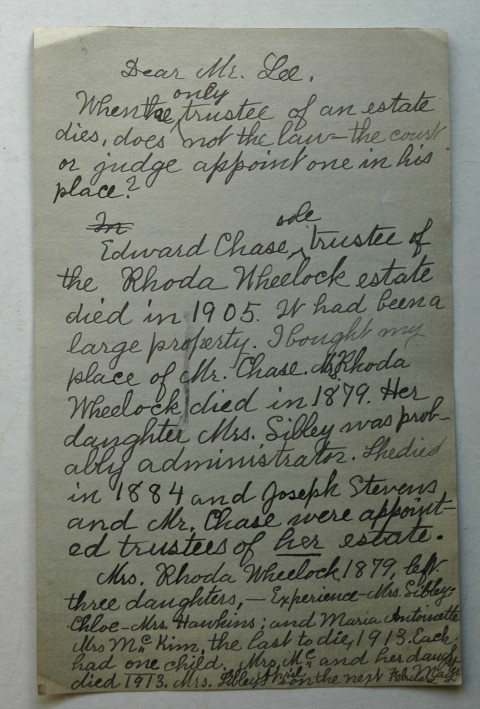 Dear Mr. Lee,
When the only trustee of an estate
dies, does not the law – the court
or judge appoint one in his
place?
In
Edward Chase, sole trustee of
the Rhoda Wheelock estate
died in 1905. It had been a
large property. I bought my
place of Mr. Chase. Mrs Rhoda
Wheelock died in 1879. Her
daughter Mrs. Sibley was prob-
ably administrator. She died
in 1884 and Joseph Stevens
and Mr. Chase were appoint-
ed trustees of her estate.
Mrs. Rhoda Wheelock 1879, left
three daughters, – Experience – Mrs. Sibley;
Chloe – Mrs. Hawkins; and Maria Antoinette
Mrs Mc Kim, the last to die, 1913. Each
had one child. Mrs. Mc " and her daugh-
died 1913. Mrs. Sibley's on the next